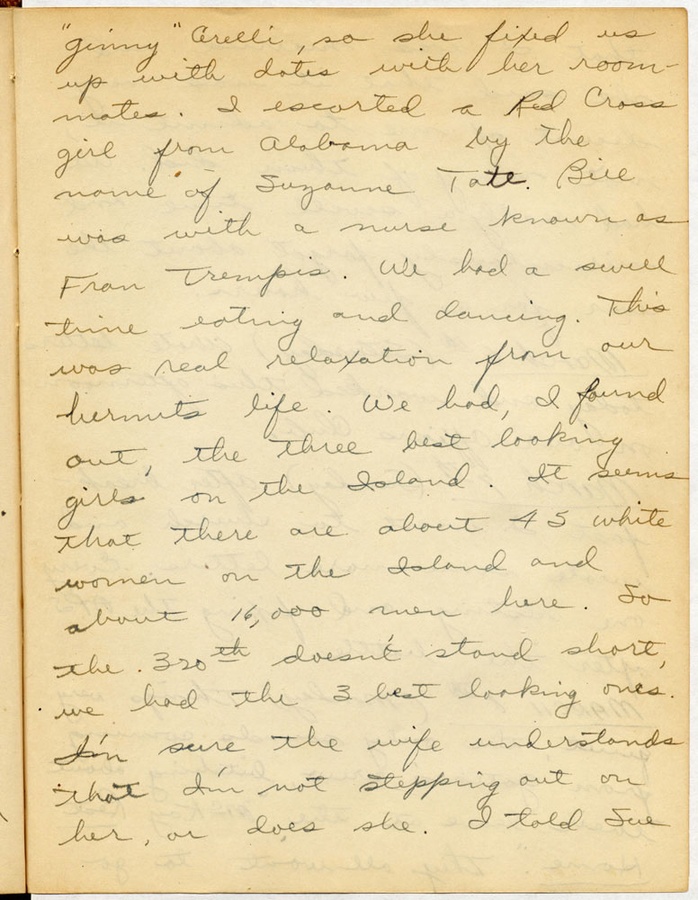 "ginny" Crelli, so she fixed us
up with dates with her room-
mates. I escorted a Red Cross
girl from Alabama by the
name of Suzanne Tate. Bill
was with a nurse known as
Fran Trempis. We had a swell
time eating and dancing. This
was real relaxation from our
hermits life. We had, I found
out, the three best looking
girls on the Island. It seems
that there are about 45 white
women on the Island and
about 16,000 men here. So
the 320th doesn't stand short,
we had the 3 best looking ones.
I'm sure the wife understands
that I'm not stepping out on
her, or does she. I told Sue